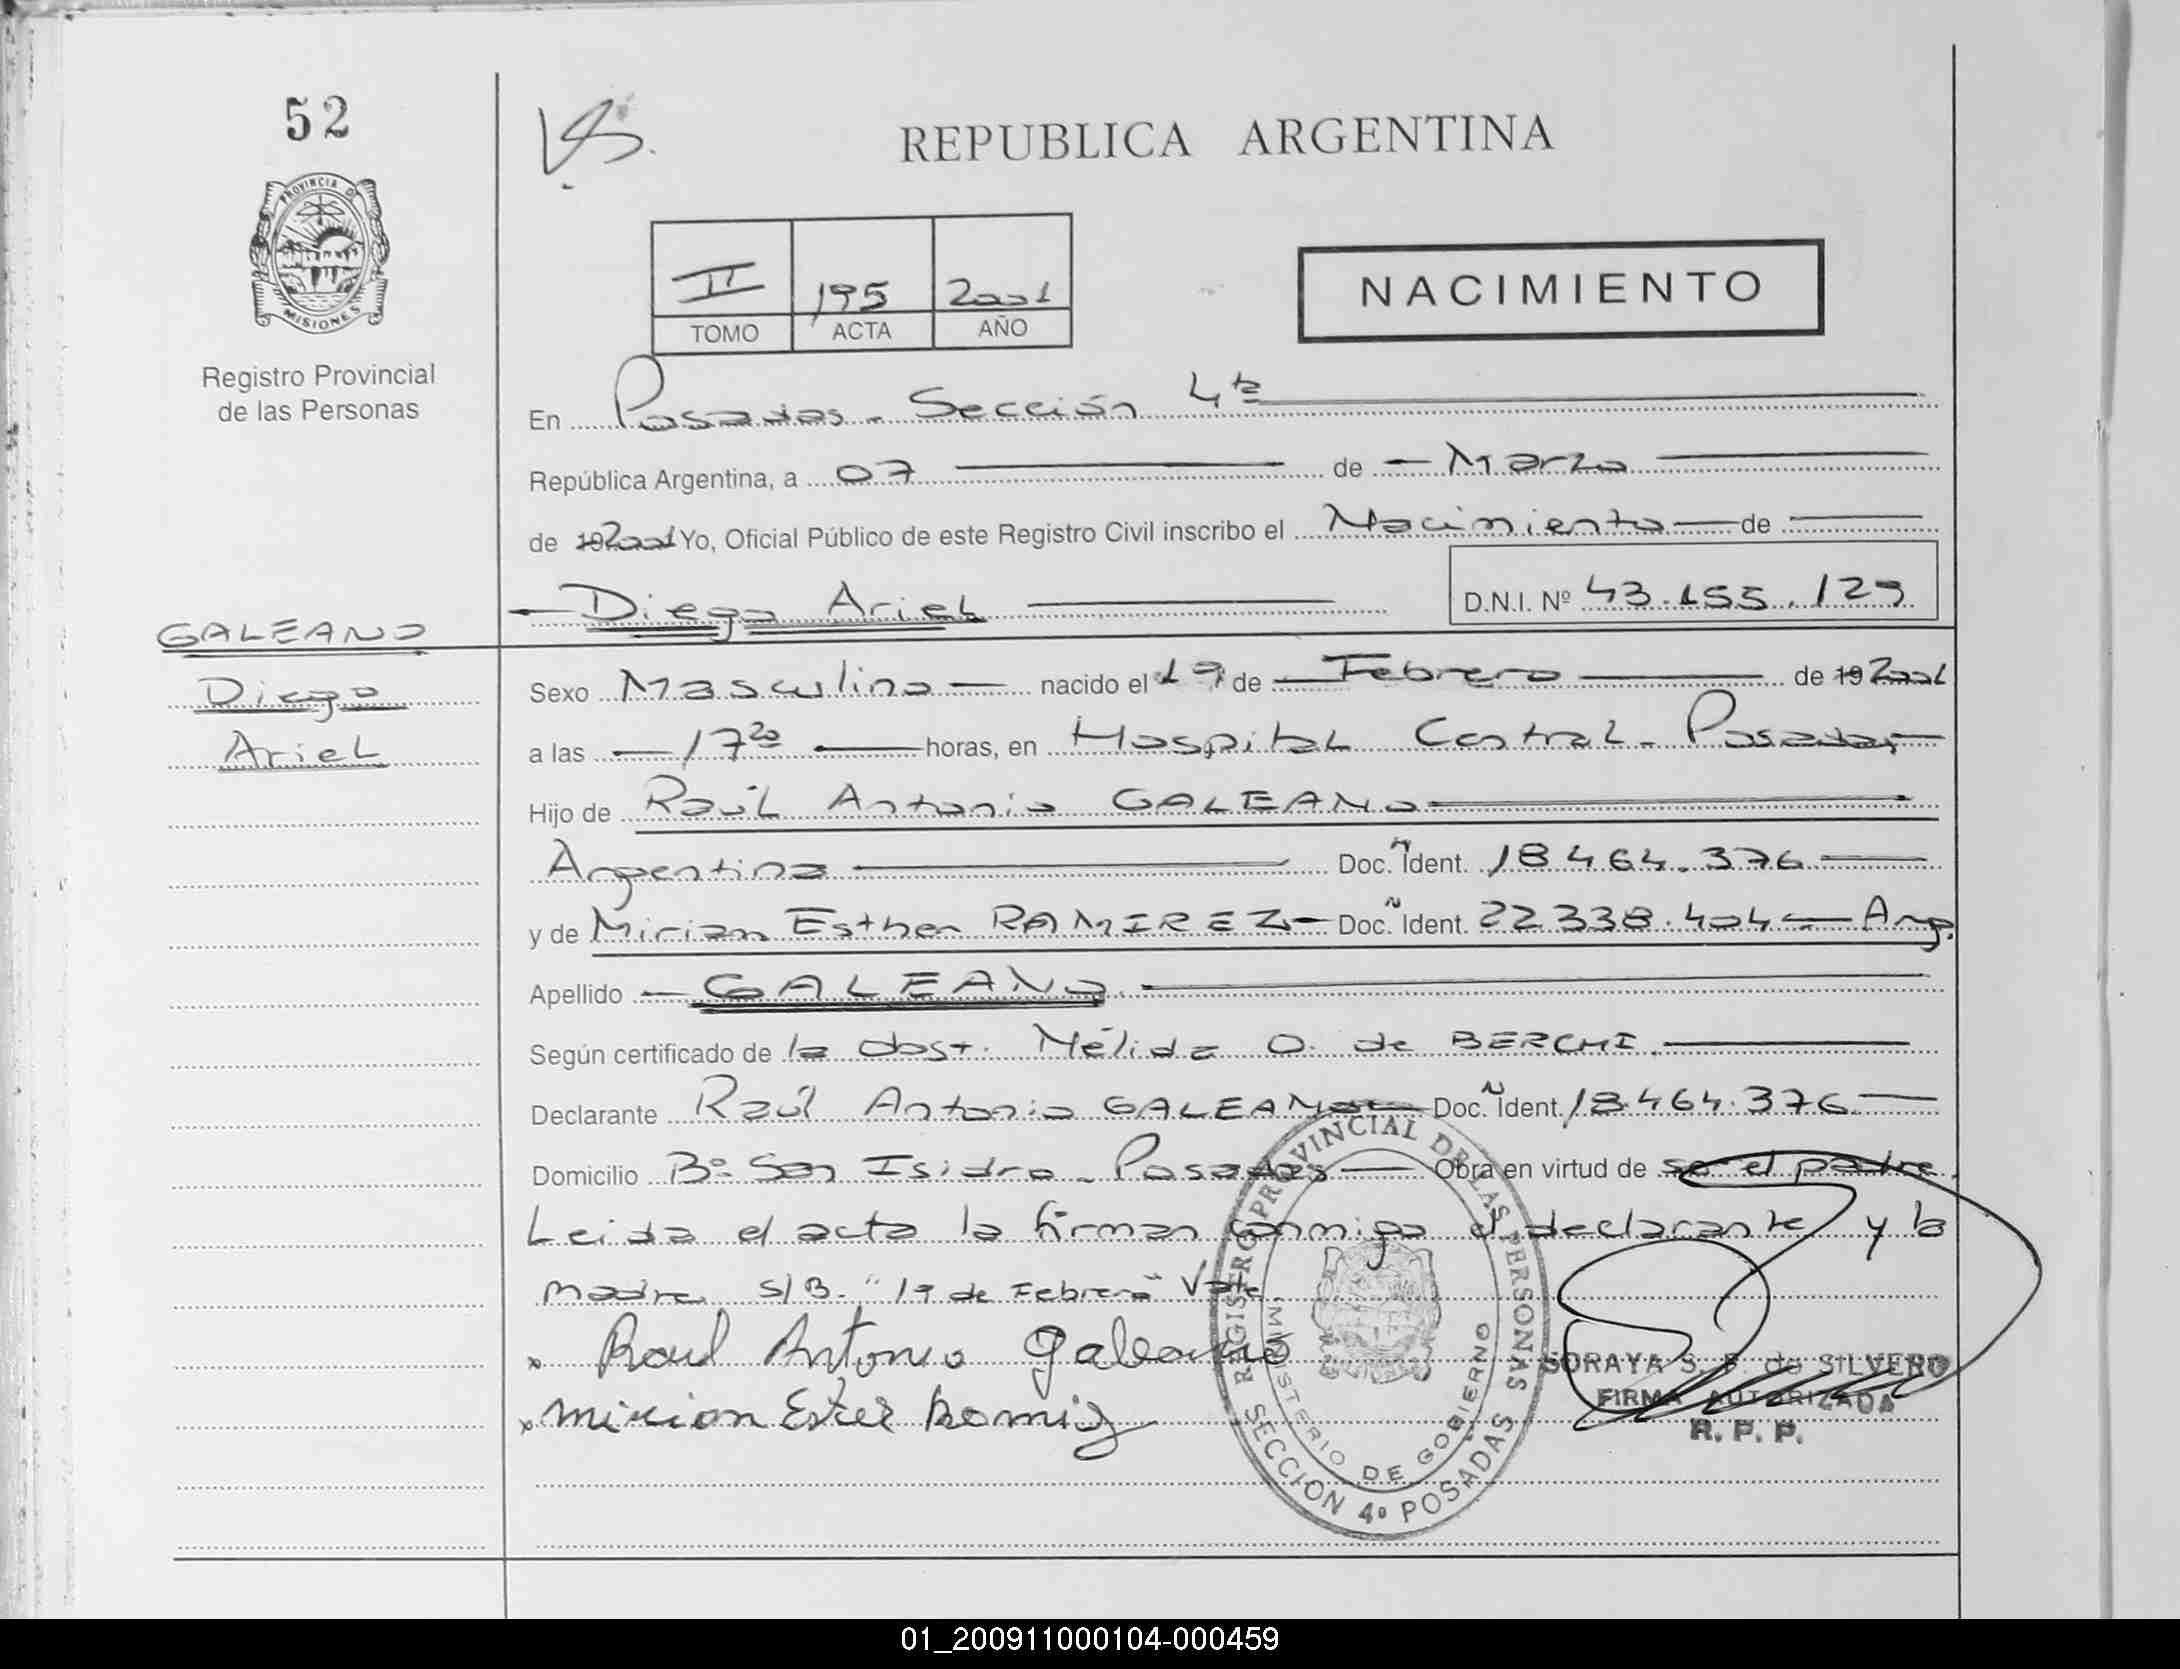 52
REPUBLICA ARGENTINA
PROVINCIA DE
MISIONES
Registro Provincial
de las Personas
II 195 2001
TOMO ACTA AÑO
NACIMIENTO
En Posadas - Sección 4ta
República Argentina, a 07 de Marzo
de 192001 Yo, Oficial Público de este Registro Civil inscribo el Nacimiento de
Diego Ariel D.N.I. Nº 43.155.129
GALEANO
Diego
Ariel
Sexo Masculino nacido el 19 de Febrero de 19 2001
a las 17 20 horas, en Hospital Central - Posadas
Hijo de Raúl Antonio GALEANO
Argentina Doc. Ñ Ident. 18.464.376
y de Mirian Esther RAMIREZ Doc. Ñ Ident. 22.338.404 - Arg.
Apellido GALEANO
Según certificado de la obst. Nélida O. de BERCHI
Declarante Raúl Antonio GALEANO Doc. Ñ Ident. 18.464.376
Domicilio Bº San Isidro - Posadas Obra en virtud de ser el padre
Leida el acta la firman conmigo el declarante y la
madre S/B. "19 de Febrero" Vale
x Raul Antonio Galeano
x mirian Ester
REGISTRO PROVINCIAL DE LAS PERSONAS
MINISTERIO DE GOBIERNO
SECCION 4º POSADAS
SORAYA S. F. de SILVERO
FIRMA AUTORIZADA
R. P. P.
01_200911000104-000459